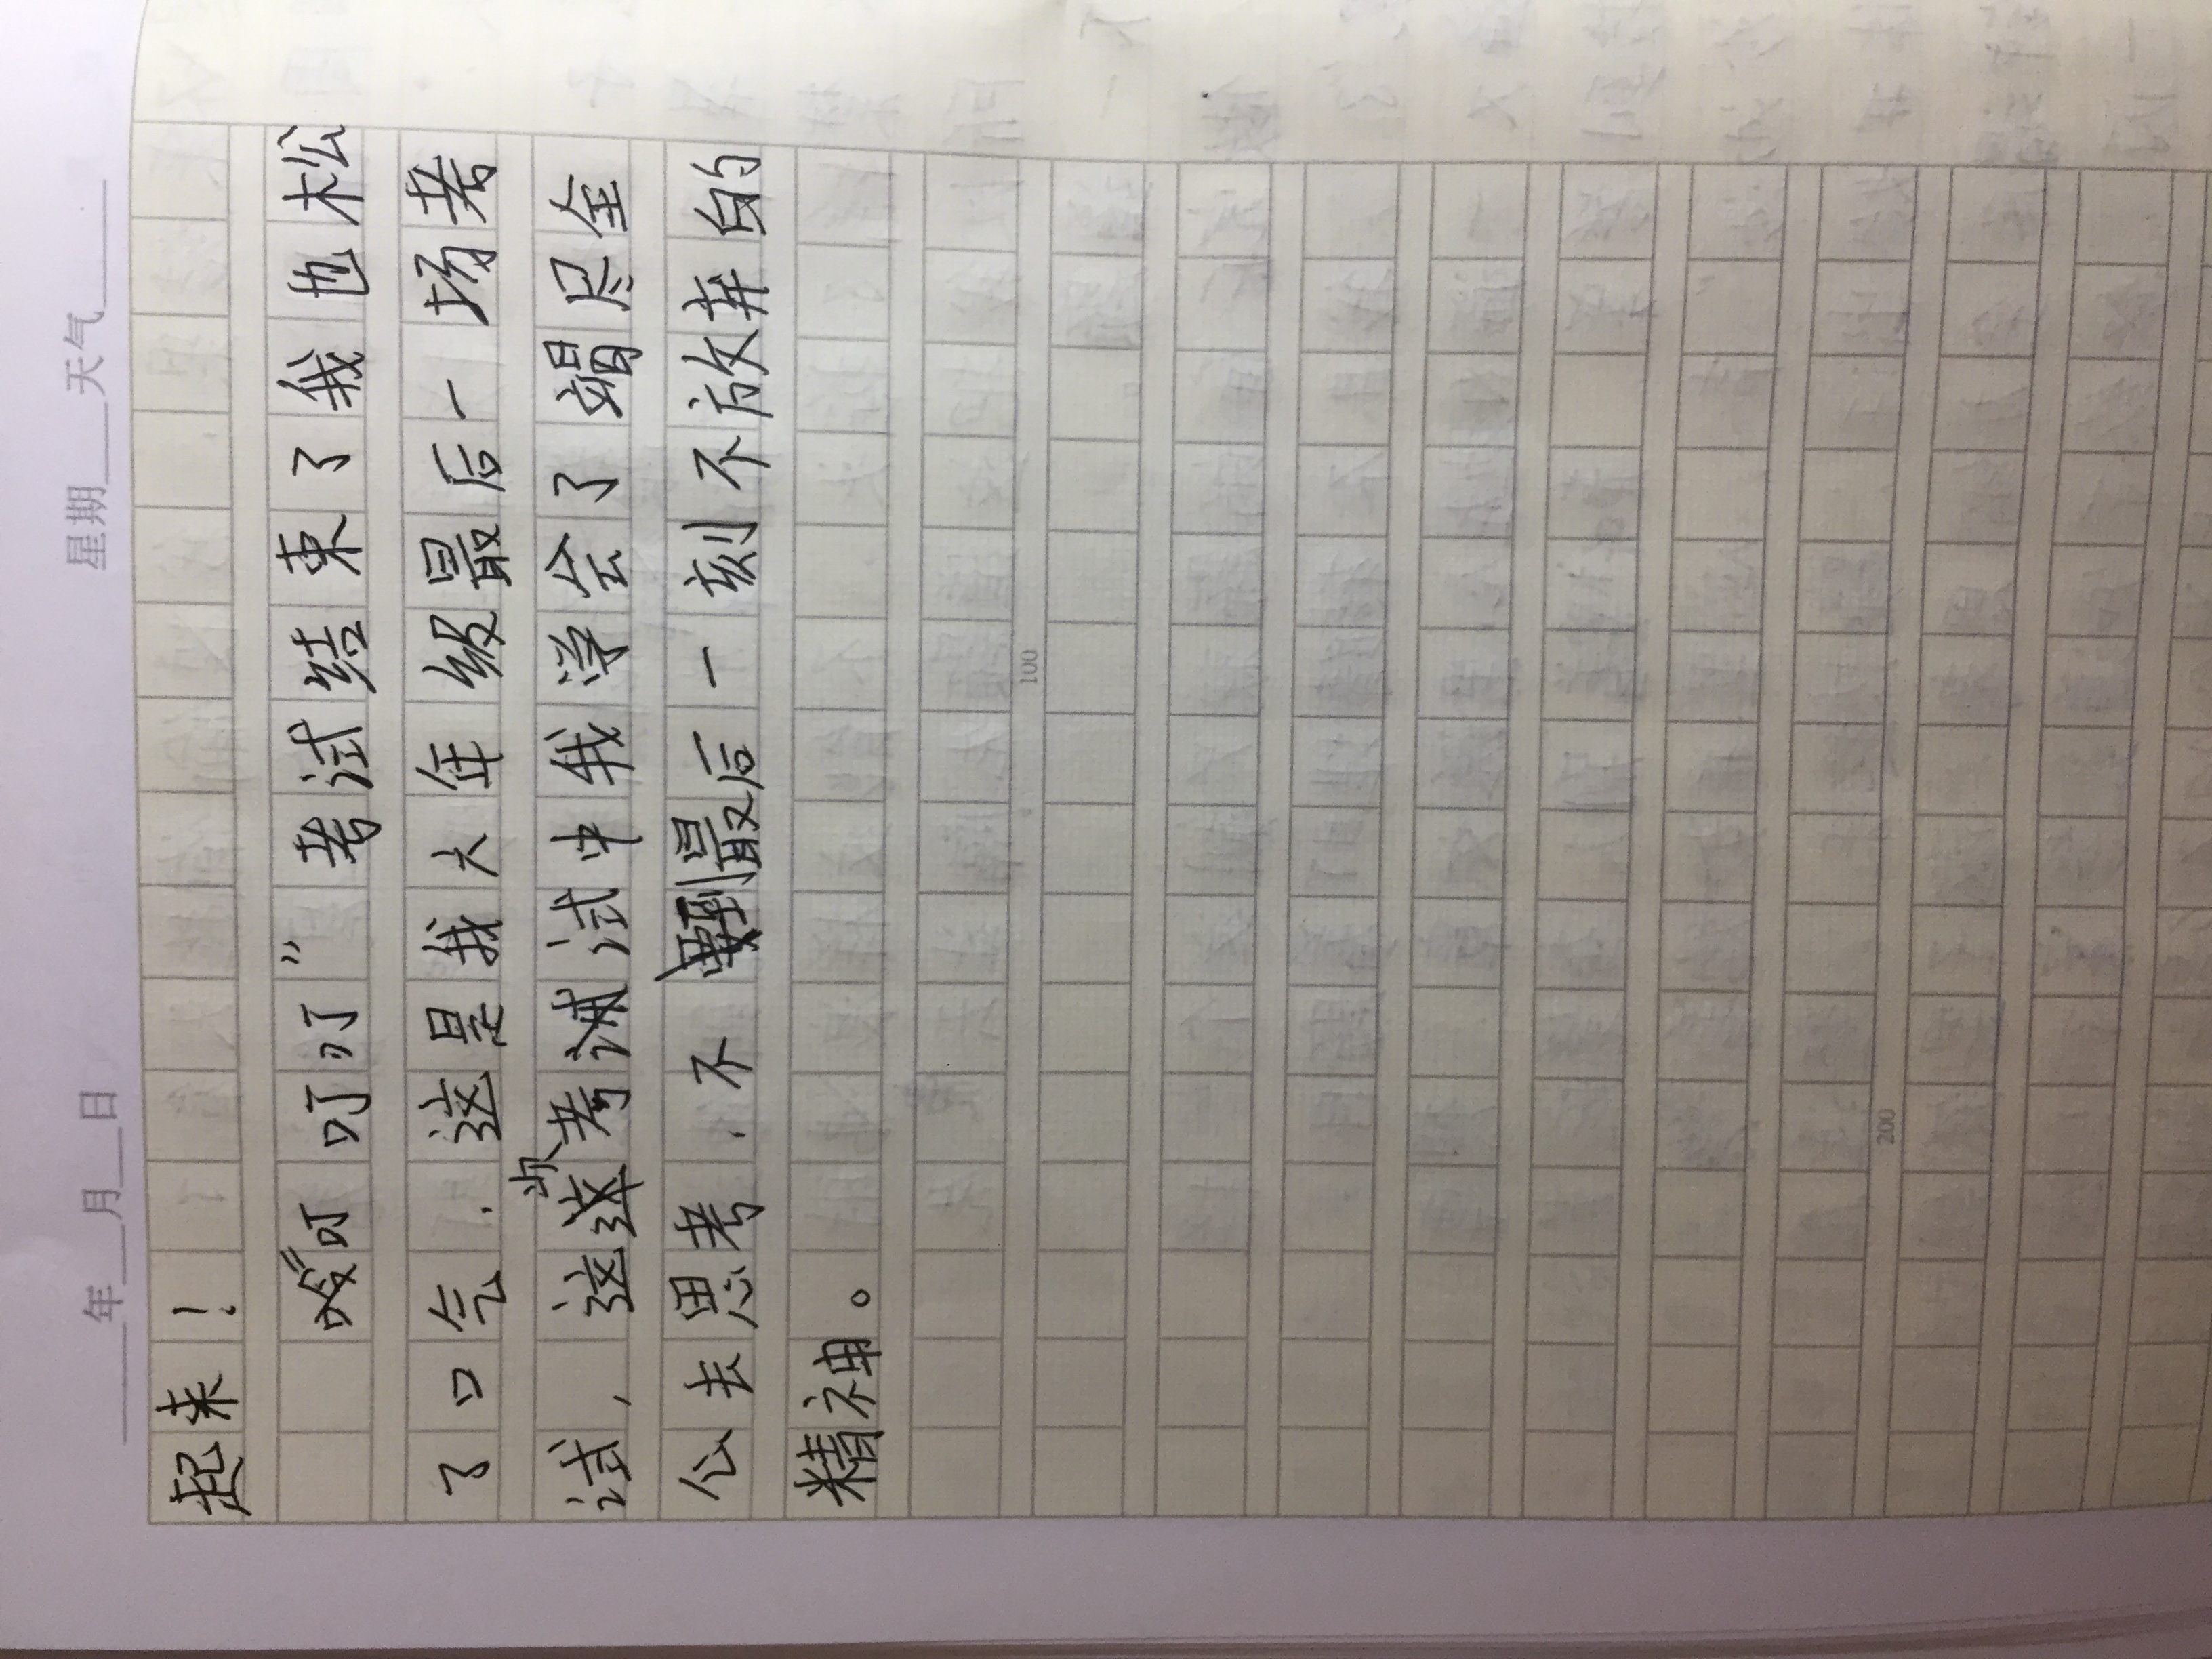 年 月 日 星期 天气
起来！
“叮叮叮”考试结束了我也松
了口气.这是我六年级最后一场考
试,这次考试中我学会了竭尽全
公去思考.不到最后一刻不放弃的
精神。
100
200